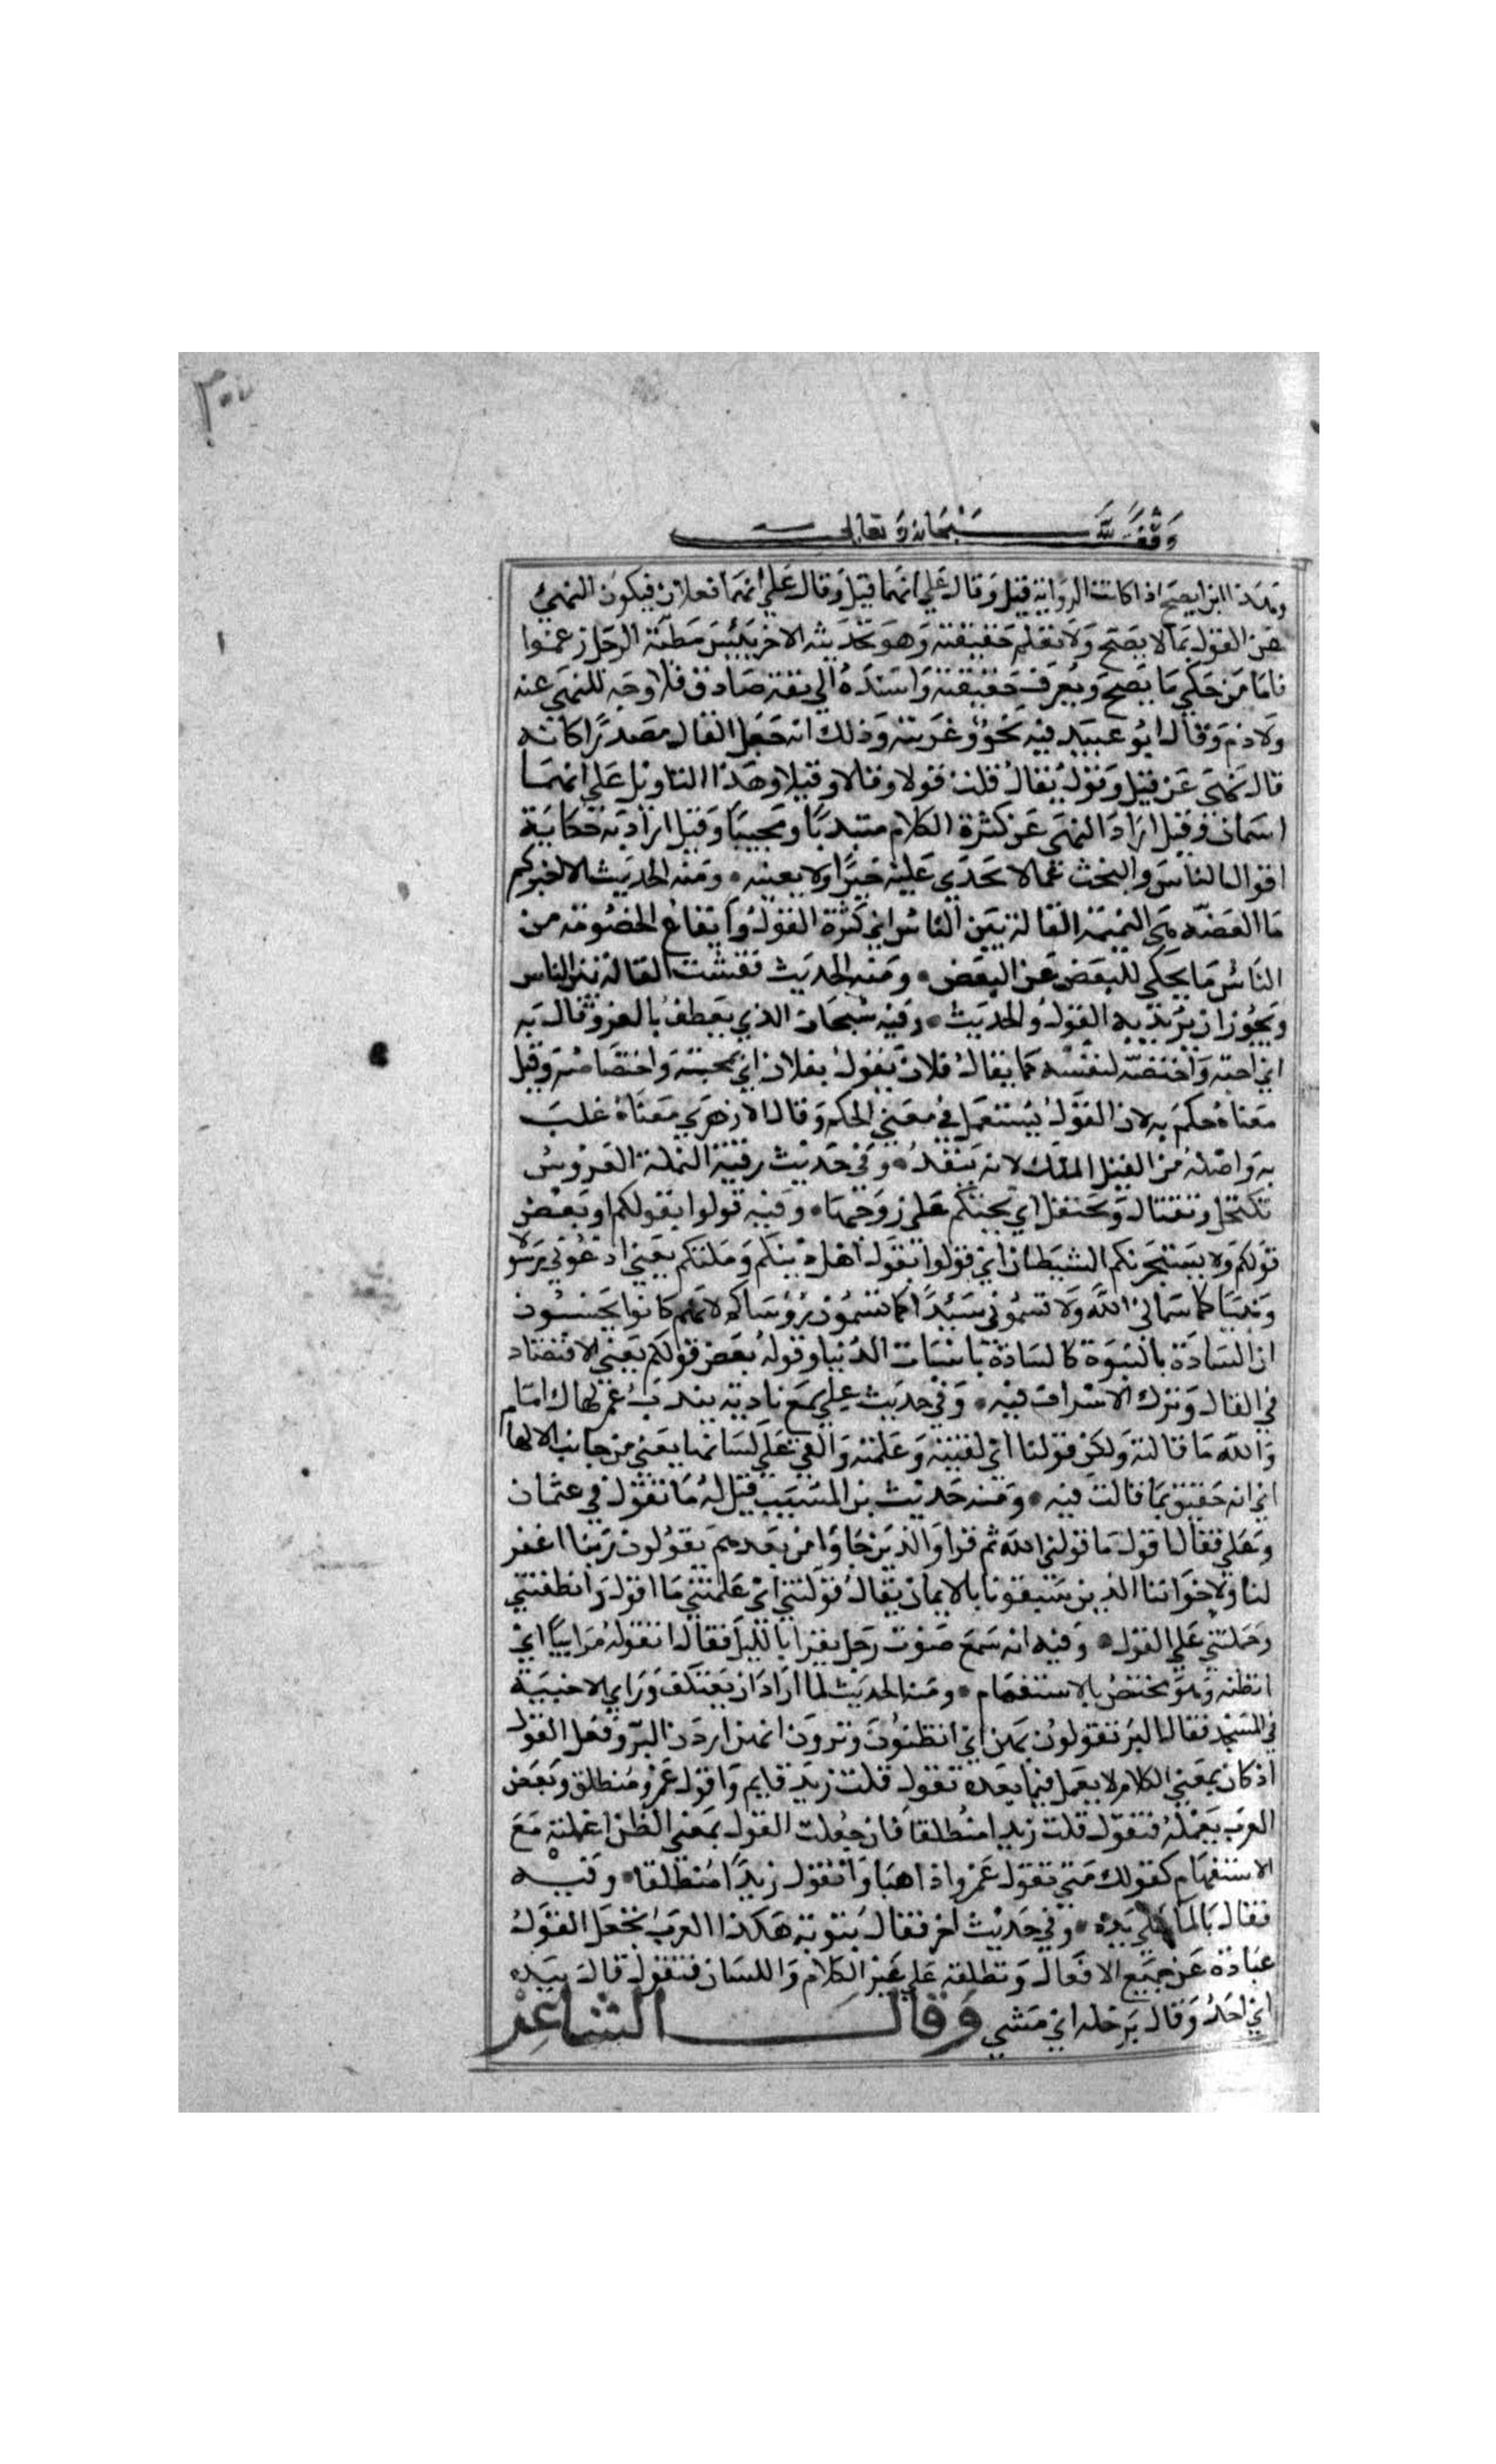 وقف لله سبحانه وتعالى
وهذا انما يصح اذا كانت الرواية قيل وقال علي انهما قيل وقال علي انهما فعلان فيكون النهي
عن القول بما لا يصح ولا تعلم حقيقته وهو كحديثه الاخر بئس مطية الرجل زعموا
فاما من حكي ما يصح ويعرف حقيقته واسنده الي ثقة صادق فلا وجه للنهي عنه
ولا ذم وقال ابو عبيد فيه نحو وغربية وذلك انه جعل القال مصدرا كانه
قال نهي عن قيل وقول يقال قلت قولا وقالا وقيلا وهذا التاويل علي انهما
اسمان وقيل اراد النهي عن كثرة الكلام مبتديا ومجيبا وقيل اراد به حكاية
اقوال الناس والبحث عما لا يجدي عليه خيرا ولا يعنيه ومنه الحديث الا اخبركم
ما العضه هي النميمة القالة بين الناس اي كثرة القول وايقاع الخصومة من
الناس ما يحكي للبعض عن البعض ومنه الحديث ففشت القالة بين الناس
ويجوز ان يريد به القول والحديث وفيه سبحان الذي يعطف بالعز وقال به
اي احبه واختصه لنفسه كما يقال فلان يقول بفلان اي بمحبته واختصاصه وقيل
معناه حكم به لان القول يستعمل في معني الحكم وقال الازهري معناه غلب
به واصله من القيل الملك لانه ينفذ وفي حديث رقية النملة العروس
تكتحل وتقتال وتحتفل اي تحتكم علي زوجها وفيه قولوا بقولكم او بعض
قولكم ولا يستجرنكم الشيطان اي قولوا بقول اهل دينكم وملتكم يعني ادعوني رسولا
ونبيا كما سماني الله ولا تسموني سيدا كما تسمون رؤساكم لانهم كانوا يحسبون
ان السيادة بالنبوة كالسيادة باسباب الدنيا وقوله بعض قولكم يعني الاقتصاد
في القال وترك الاسراف فيه وفي حديث علي سمع نادبة يندب عمر فقال اما
والله ما قالته ولكن قولته اي لقنته وعلمته والقي علي لسانها يعني من جانب الالهام
اي انه حقيق بما قالت فيه ومنه حديث بن المسيب قيل له ما تقول في عثمان
وعلي فقال اقول ما قولني الله ثم قرا والذين جاؤا من بعدهم يقولون ربنا اغفر
لنا ولاخواننا الذين سبقونا بالايمان يقال قولتني اي علمتني ما اقول وانطقتني
وحملتني علي القول وفيه انه سمع صوت رجل يقرا بالليل فقال اتقوله مراييا اي
اتظنه وهو مختص بالاستفهام ومنه الحديث لما اراد ان يعتكف وراي الاخبية
في المسجد فقال البر تقولون بهن اي اتظنون وترون انهن اردن البر وفعل القول
اذ كان بمعني الكلام لا يعمل فيما بعده تقول قلت زيد قايم واقول عمرو منطلق وبعض
العرب يعمله فتقول قلت زيدا منطلقا فان جعلت القول بمعني الظن اعملته مع
الاستفهام كقولك متي تقول عمرو اذاهبا واتقول زيدا منطلقا وفيه
فقال بالما علي يده وفي حديث اخر فقال بثوبه هكذا العرب تجعل القول
عبادة عن جميع الافعال وتطلقه علي غير الكلام واللسان فتقول قال بيده
اي اخذ وقال برجله اي مشي وقال الشاعر